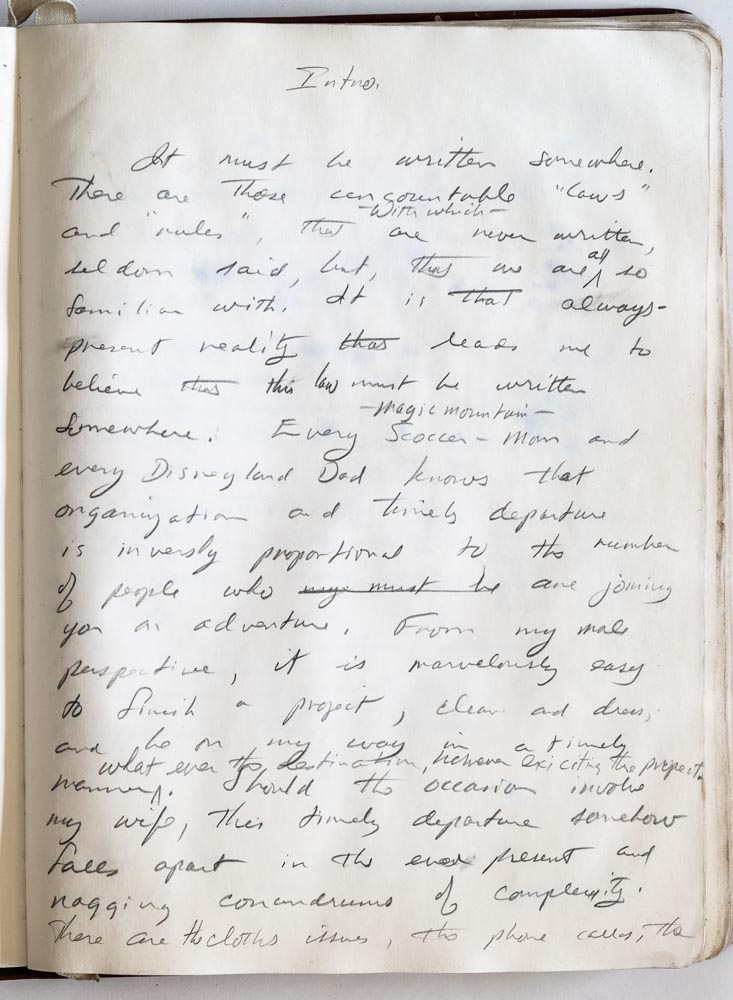 Intro.
It must be written somewhere.
There are those uncountable "laws"
-With which-
and "rules", that are never written,
seldom said, but, that we are all so
familiar with. It is that always-
present reality that leads me to
believe that this law must be written
Somewhere. Every Scoccer-Mom and
-Magic mountain-
every Disneyland Dad knows that
organization and timely departure
is inversly proportional to the number
of people who may must be are joining
you on adventure. From my male
perspective, it is marvelously easy
to finish a project, clean and dress,
and be on my way in a timely
what ever the destination, however exiciting the project.
manner. Should the occasion involve
my wife, this timely departure somehow
falls apart in the ever present and
nagging conundrums of complexity.
There are the cloths issues, the phone calls, the